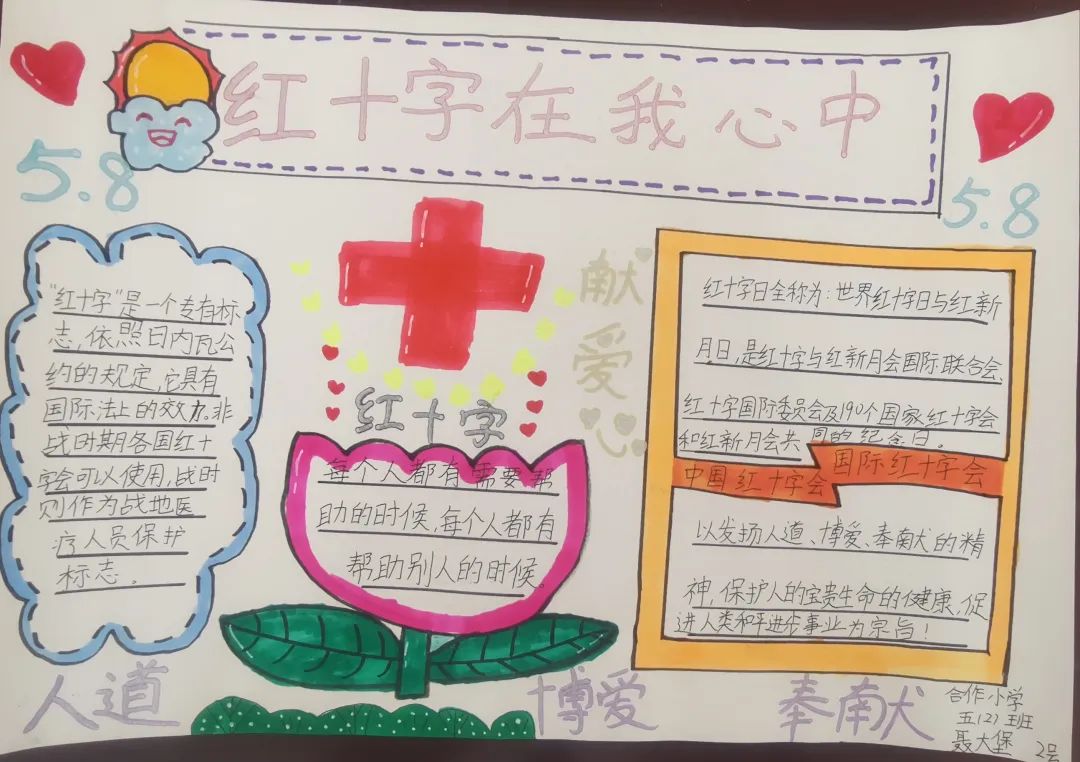 红十字在我心中
5.8
5.8
“红十字”是一个专有标
志,依照日内瓦公
约的规定,它具有
国际法上的效力。非
战时期各国红十
字会可以使用,战时
则作为战地医
疗人员保护
标志。
献爱心
红十字
每个人都有需要帮
助的时候,每个人都有
帮助别人的时候。
红十字日全称为:世界红十字日与红新
月日,是红十字与红新月会国际联合会、
红十字国际委员会及190个国家红十字会
和红新月会共同的纪念日。
中国红十字会
国际红十字会
以发扬人道、博爱、奉献的精
神,保护人的宝贵生命的健康,促
进人类和平进步事业为宗旨!
人道
博爱
奉献
合作小学
五(2)班
聂大堡
2号